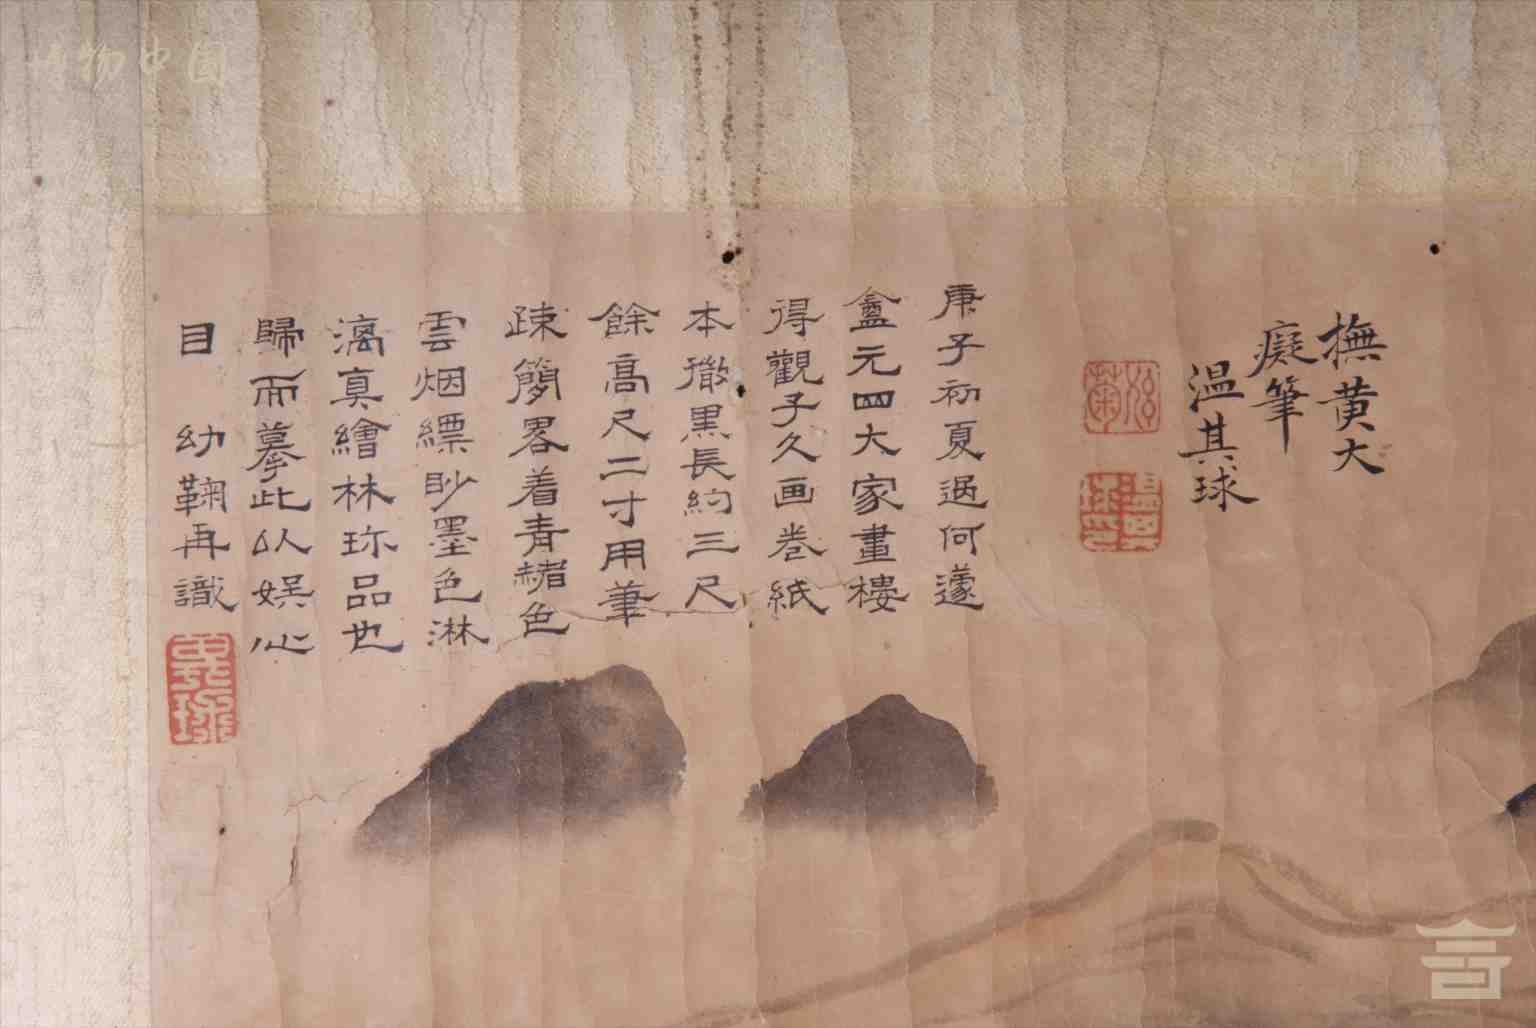 撫黄大
癡筆
温其球
庚子初夏過何蘧
盦元四大家畫樓
得觀子久画卷紙
本澂黒長約三尺
餘高尺二寸用筆
疎簡畧着青赭色
雲烟縹眇墨色淋
漓真繪林珎品也
歸而摹此以娱心
目 幼鞠再識
博物中国